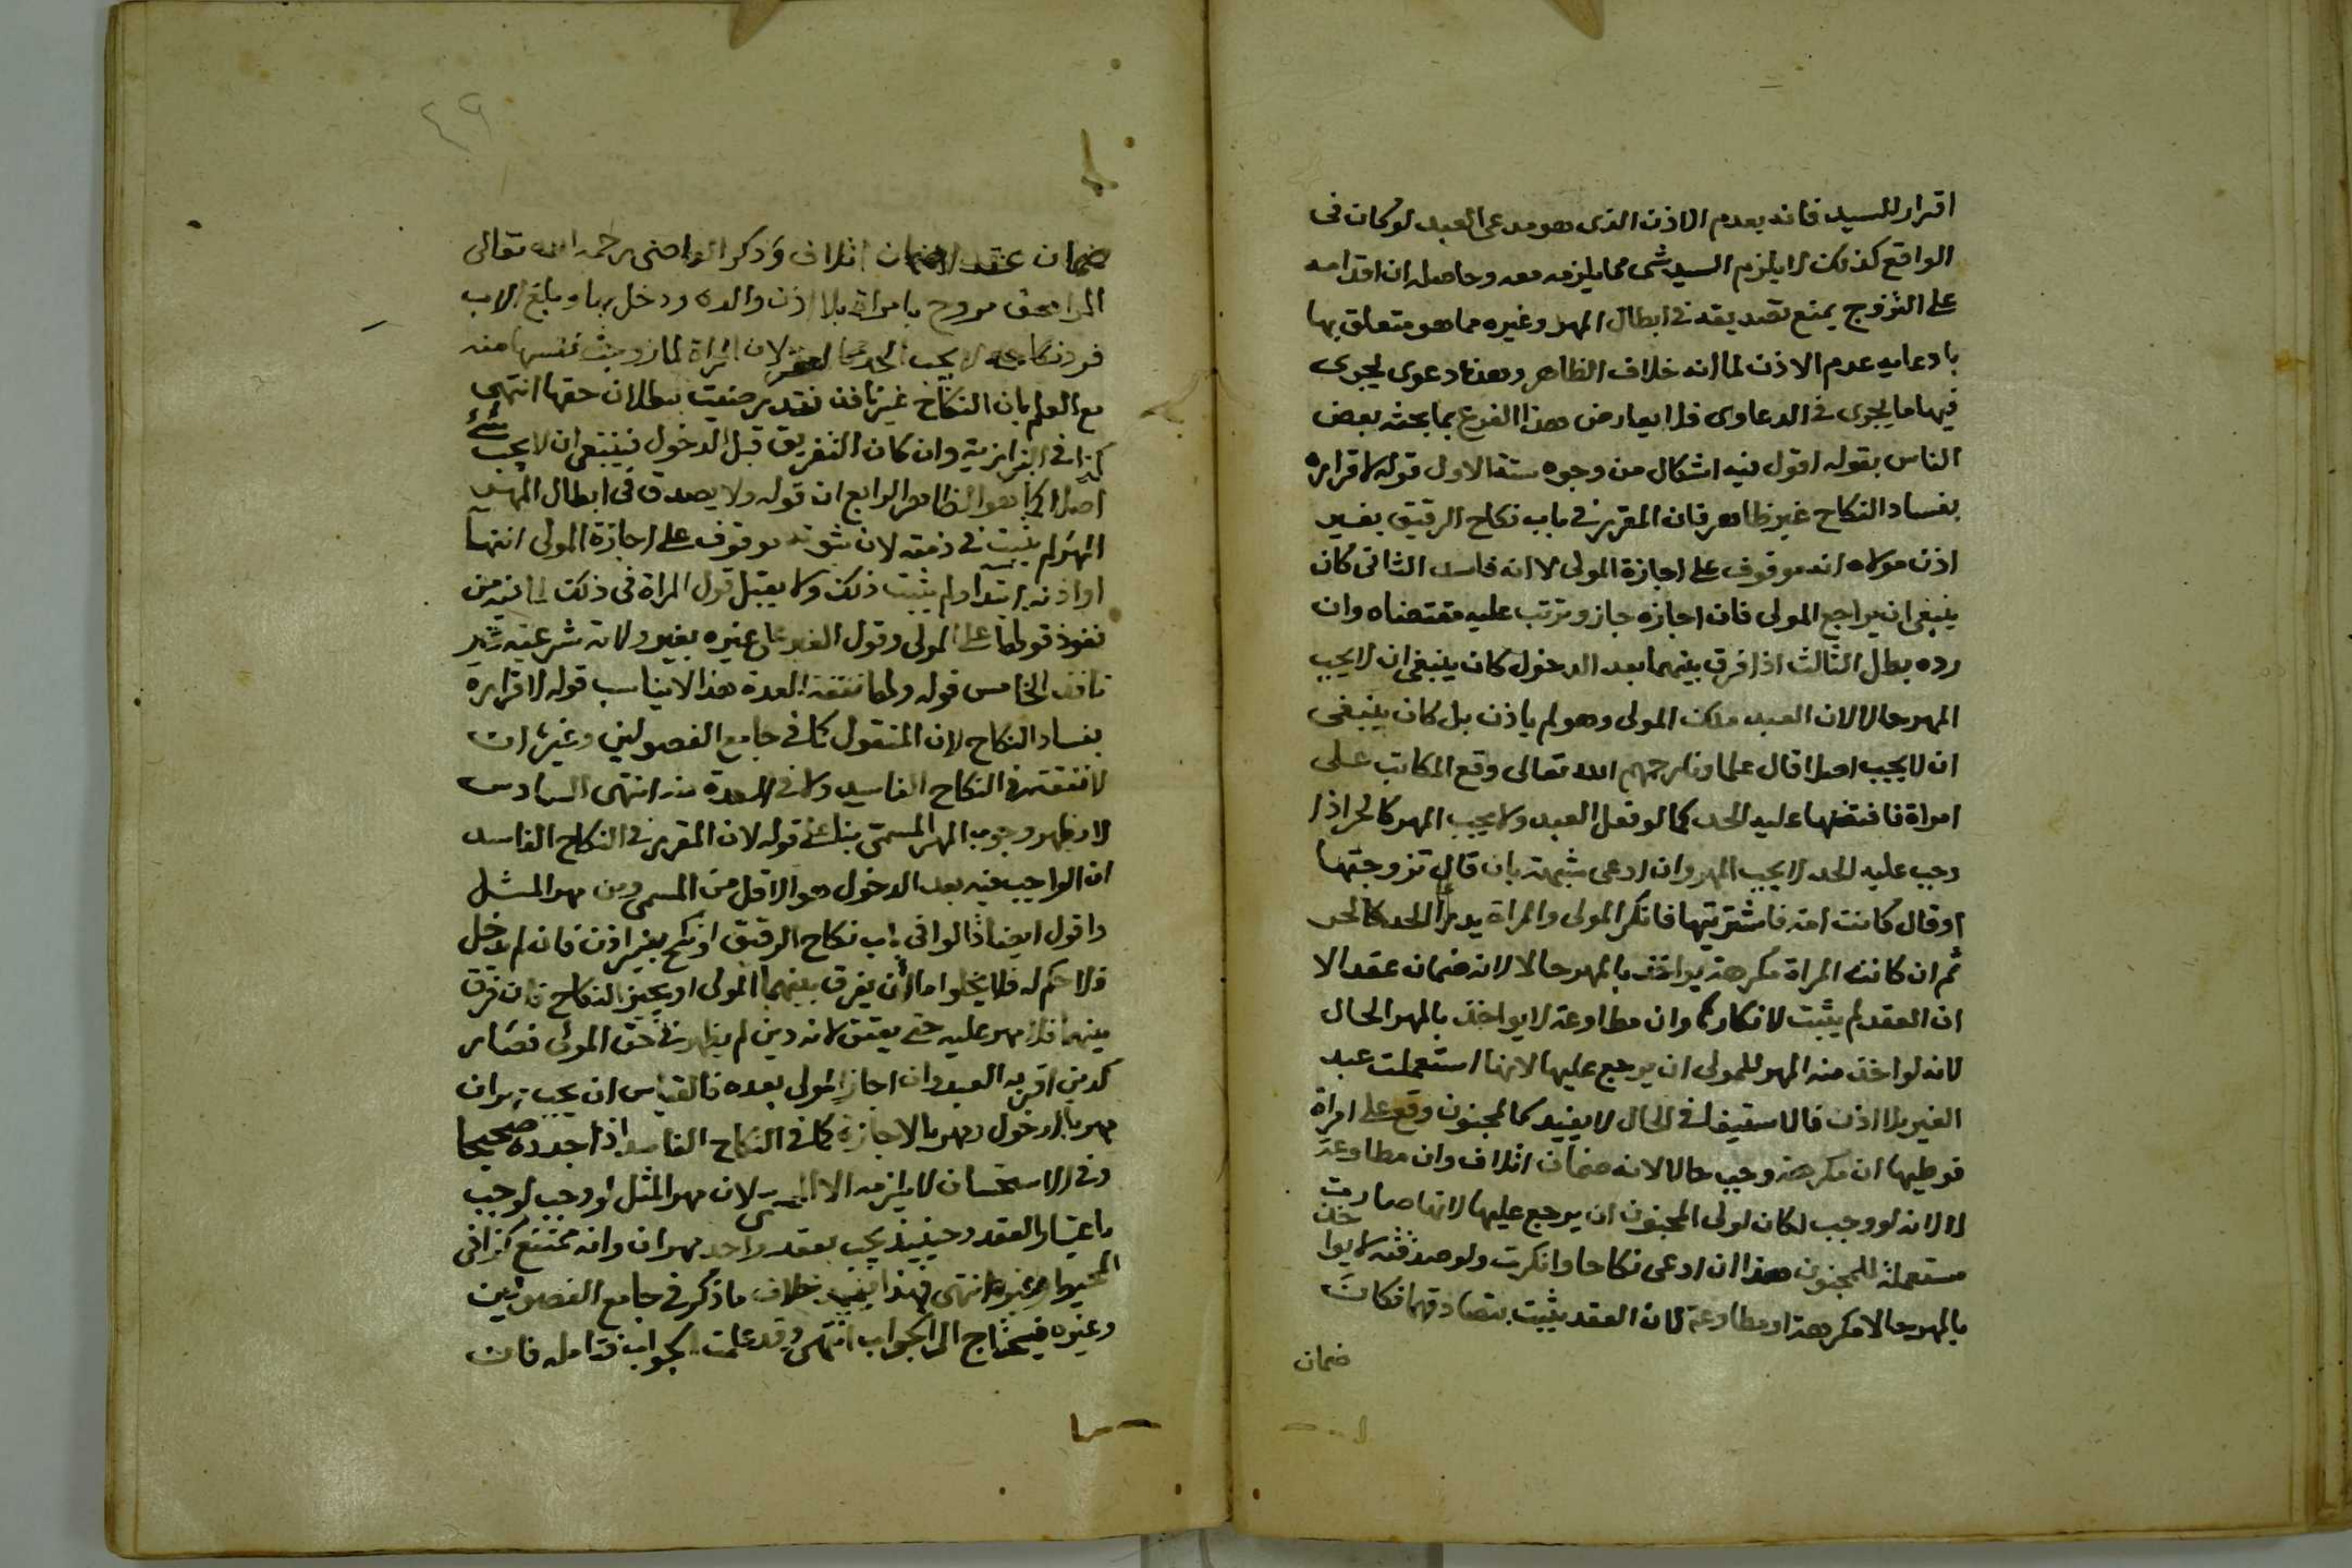 اقرار للسيد فانه بعدم الاذن الذى هو مدعى العبد لو كان فى
الواقع كذلك لا يلزم السيد شى مما يلزمه معه وحاصله ان اقدامه
على التزوج يمنع تصديقه فى ابطال المهر وغيره مما هو متعلق بها
بادعايه عدم الاذن لما انه خلاف الظاهر وهذه دعوى يجرى
فيها ما يجرى فى الدعاوى فلا يعارض هذا الفرع بما بحثه بعض
الناس بقوله اقول فيه اشكال من وجوه ستة الاول قوله لاقراره
بفساد النكاح غير ظاهر فان المقرر فى باب نكاح الرقيق بغير
اذن مولاه انه موقوف على اجازة المولى لا انه فاسد الثانى كان
ينبغى ان يراجع المولى فان اجازه جاز وترتب عليه مقتضاه وان
رده بطل الثالث اذا فرق بينهما بعد الدخول كان ينبغى ان لا يجب
المهر حالا لان العبد ملك المولى وهو لم ياذن بل كان ينبغى
ان لا يجب اصلا قال علماونا رحمهم الله تعالى وقع المكاتب على
امراة فافتضها عليه الحد كما لو فعل العبد ولا يجب المهر كالحر اذا
وجب عليه الحد لا يجب المهر وان ادعى شبهة بان قال تزوجتها
او قال كانت امة فاشتريتها فانكر المولى والمراة يدرأ الحد كالحر
ثم ان كانت المراة مكرهة يواخذ بالمهر حالا لانه ضمان عقد الا
ان العقد لم يثبت لانكارها وان مطاوعة لا يواخذ بالمهر الحال
لانه لو اخذ منه المهر للمولى ان يرجع عليها لانها استعملت عبد
الغير بلا اذن فالاستيفا فى الحال لا يفيد كالمجنون وقع على امراة
فوطيها ان مكرهة وجب حالا لانه ضمان اتلاف وان مطاوعة
لا لانه لو وجب لكان لولى المجنون ان يرجع عليها لانها صارت
مستعملة للمجنون هذا ان ادعى نكاحا وانكرت ولو صدقته لا يواخذ
بالمهر حالا مكرهة او مطاوعة لان العقد يثبت بتصادقهما فكان
ضمان
٤٩
ضمان عقد لا ضمان اتلاف وذكر القاضى رحمه الله تعالى
المراهق تزوج بامراة بلا اذن والده ودخل بها وبلغ الاب
فرد نكاحه لا يجب الحد ولا العقر لان المراة لما زوجت نفسها منه
مع العلم بان النكاح غير نافذ فقد رضيت ببطلان حقها انتهى
كذا فى البزازية وان كان التفريق قبل الدخول فينبغى ان لا يجب شئ
اصلا كما هو الظاهر الرابع ان قوله ولا يصدق فى ابطال المهر
المهر لم يثبت فى ذمته لان ثبوته موقوف على اجازة المولى انتها
او اذنه ابتدا ولم يثبت ذلك ولا يقبل قول المراة فى ذلك لما فيه من
نفوذ قولها على المولى وقول الغير على غيره بغير ولاية شرعية غير
نافذ الخامس قوله ولها نفقة العدة هذا لا يناسب قوله لاقراره
بفساد النكاح لان المنقول كما فى جامع الفصولين وغيره ان
لا نفقة فى النكاح الفاسد ولا فى العدة منه انتهى السادس
لا يظهر وجوب المهر المسمى بناء على قوله لان المقرر فى النكاح الفاسد
ان الواجب فيه بعد الدخول هو الاقل من المسمى ومن مهر المثل
واقول ايضا قالوا فى باب نكاح الرقيق اذا نكح بغير اذن فان لم يدخل
فلا حكم له فلا يخلوا اما أن يفرق بينهما المولى او يجيز النكاح فان فرق
بينهما فلا مهر عليه حتى يعتق لانه دين لم يظهر فى حق المولى فصار
كدين اقر به العبد وان اجاز المولى بعده فالقياس ان يجب مهران
مهر بالدخول ومهر بالاجازة كما فى النكاح الفاسد اذا جدده صحيحا
وفى الاستحسان لا يلزمه الا المسمى لان مهر المثل لو وجب لوجب
باعتبار العقد وحينيذ يجب بعقد واحد مهران وانه ممتنع كذا فى
المحيط وغيره انتهى فهذا يفيد خلاف ما ذكر فى جامع الفصولين
وغيره فيحتاج الى الجواب انتهى وقد علمت الجواب فتامله فان